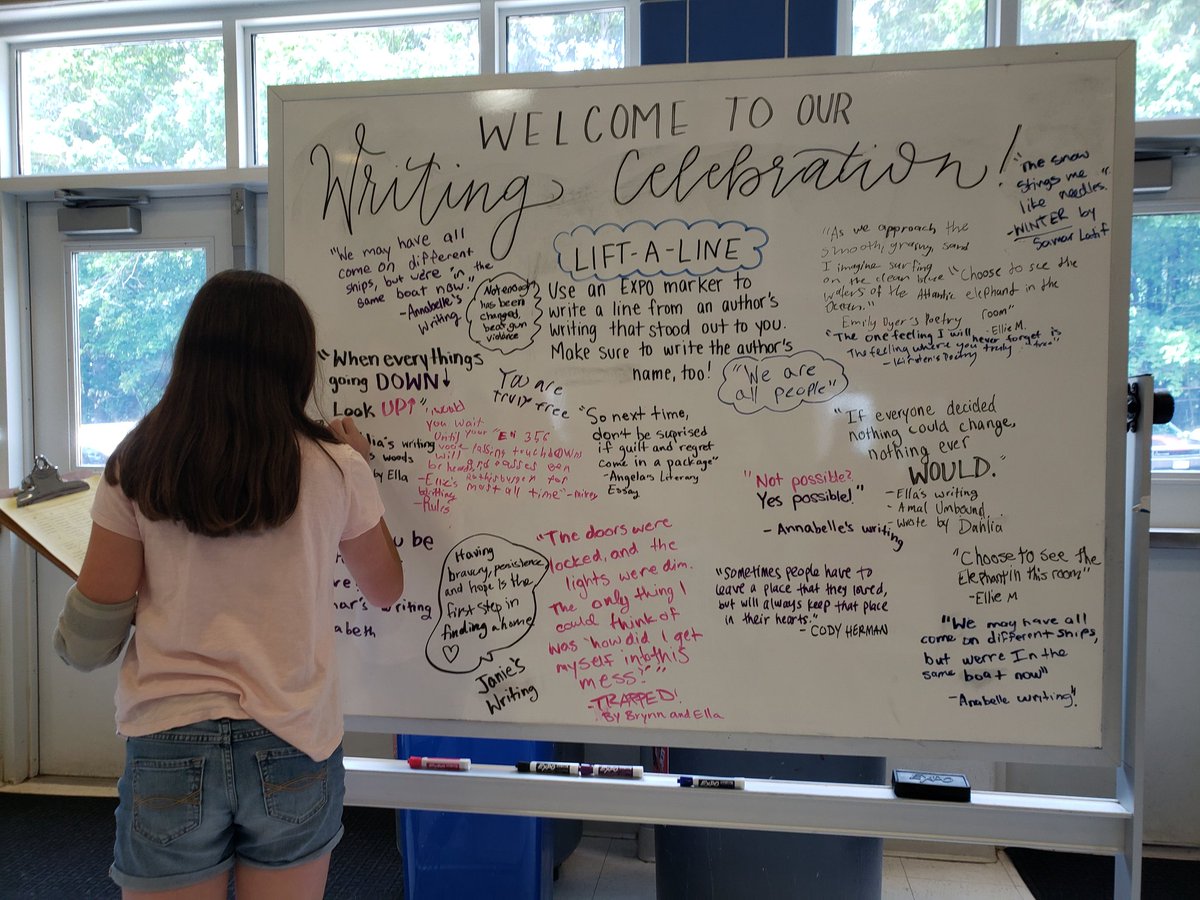 WELCOME TO OUR
Writing Celebration!
"The snow
stings me
like needles."
-WINTER by
"We may have all
come on different
ships, but we're in the
same boat now."
-Annabelle's
Writing
Not enough
has been
changed
beat gun
violence
LIFT-A-LINE
Use an EXPO marker to
write a line from an author's
writing that stood out to you.
Make sure to write the author's
name, too!
"As we approach the
smooth, grainy, sand
I imagine surfing
on the clean blue
waters of the Atlantic
Ocean."
Emily Dyer's Poetry
"Choose to see the
elephant in the
room"
-Ellie M.
"The one feeling I will never forget is
The feeling where you truly free"
-Kirsten's Poetry
"We are
all people"
"When everythings
going DOWN↓
Look UP↑"
's writing
woods
by Ella
You are
truly free
would
you wait
until your
will
be heard
-Rules
"EN 356
touchdowns
most all time"-mikey
"So next time,
don't be suprised
if guilt and regret
come in a package"
-Angela's Literary
Essay
"If everyone decided
nothing could change,
nothing ever
WOULD."
-Ella's writing
-Amal Unbound
-wrote by Dahlia
"Not possible?
Yes possible!"
-Annabelle's writing
be
's writing
Having
bravery, persistence
and hope is the
first step in
finding a home
♡
Janie's
Writing
"The doors were
locked, and the
lights were dim.
The only thing I
could think of
was 'how did I get
myself into this
mess?'"
-TRAPPED!
By Brynn and Ella
"Sometimes people have to
leave a place that they loved,
but will always keep that place
in their hearts."
- CODY HERMAN
"Choose to see the
Elephant In this room"
-Ellie M
"We may have all
come on different ships,
but we're In the
same boat now"
-Anabelle writing"
EXPO
EXPO
EXPO
EXPO